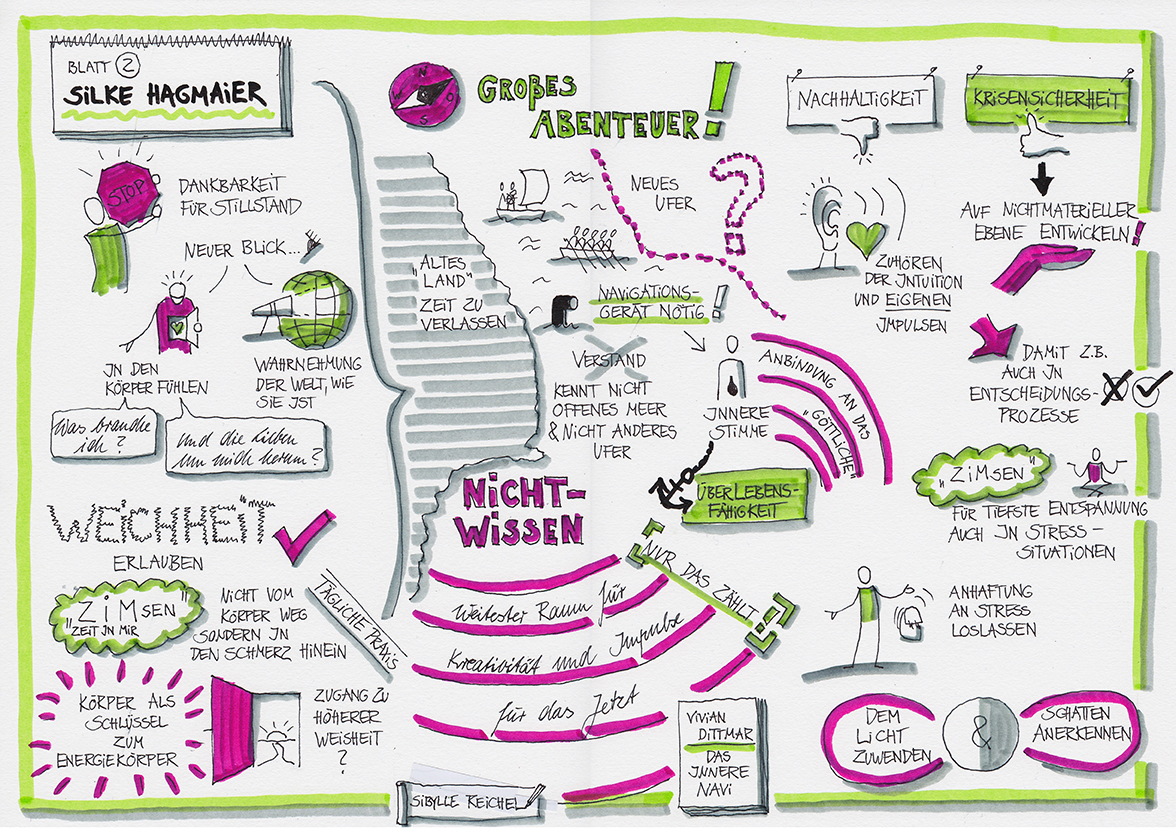 BLATT 2
SILKE HAGMAIER
STOP
DANKBARKEIT
FÜR STILLSTAND
NEUER BLICK...
IN DEN
KÖRPER FÜHLEN
WAHRNEHMUNG
DER WELT, WIE
SIE IST
Was brauche
ich?
Und die Lieben
um mich herum?
"WEICHHEIT"
ERLAUBEN
"ZiMSEN"
ZEIT IN MIR
NICHT VOM
KÖRPER WEG
SONDERN IN
DEN SCHMERZ HINEIN
TÄGLICHE PRAXIS
KÖRPER ALS
SCHLÜSSEL
ZUM
ENERGIEKÖRPER
ZUGANG ZU
HÖHERER
WEISHEIT
?
N
O
S
W
GROßES
ABENTEUER!
"ALTES
LAND"
ZEIT ZU
VERLASSEN
NEUES
UFER
?
NAVIGATIONS-
GERÄT NÖTIG!
VERSTAND
KENNT NICHT
OFFENES MEER
& NICHT ANDERES
UFER
INNERE
STIMME
ANBINDUNG AN DAS
"GÖTTLICHE"
ÜBERLEBENS-
FÄHIGKEIT
NICHT-
WISSEN
NUR DAS ZÄHLT
Weitester Raum für
Kreativität und Impulse
für das Jetzt
VIVIAN
DITTMAR
DAS
INNERE
NAVI
SIBYLLE REICHEL
NACHHALTIGKEIT
KRISENSICHERHEIT
AUF NICHTMATERIELLER
EBENE ENTWICKELN!
ZUHÖREN
DER INTUITION
UND EIGENEN
IMPULSEN
DAMIT Z.B.
AUCH IN
ENTSCHEIDUNGS-
PROZESSE
"ZiMSEN"
FÜR TIEFSTE ENTSPANNUNG
AUCH IN STRESS-
SITUATIONEN
ANHAFTUNG
AN STRESS
LOSLASSEN
DEM
LICHT
ZUWENDEN
&
SCHATTEN
ANERKENNEN